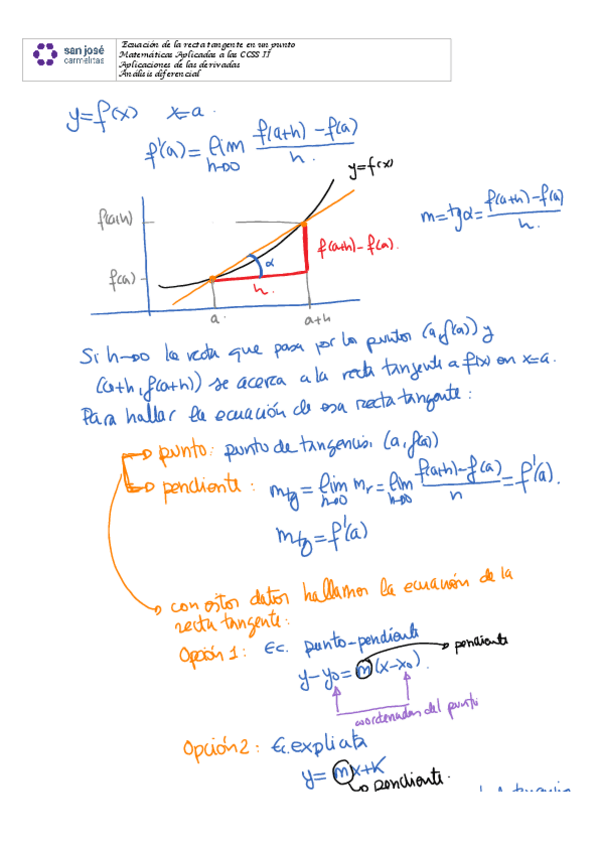 san josé
carmelitas
Ecuación de la recta tangente en un punto
Matemáticas Aplicadas a las CCSS II
Aplicaciones de las derivadas
Análisis diferencial
y=f(x) x=a.
f'(a)= lim h→0 f(a+h)-f(a) / h.
y=f(x)
f(a+h)
m=tgα= f(a+h)-f(a) / h.
f(a+h)-f(a).
α
f(a)
h.
a. a+h
Si h→0 la recta que pasa por los puntos (a,f(a)) y
(a+h, f(a+h)) se acerca a la recta tangente a f(x) en x=a.
Para hallar la ecuación de esa recta tangente:
→ punto: punto de tangencia. (a, f(a))
→ pendiente: mtg= lim h→0 mr= lim h→0 f(a+h)-f(a) / h = f'(a).
mtg=f'(a)
→ con estos datos hallamos la ecuación de la
recta tangente:
Opción 1: Ec. punto-pendiente
→ pendiente
y-y0=m(x-x0).
coordenadas del punto
Opción 2: Ec. explícita
y= mx+K
→ pendiente.